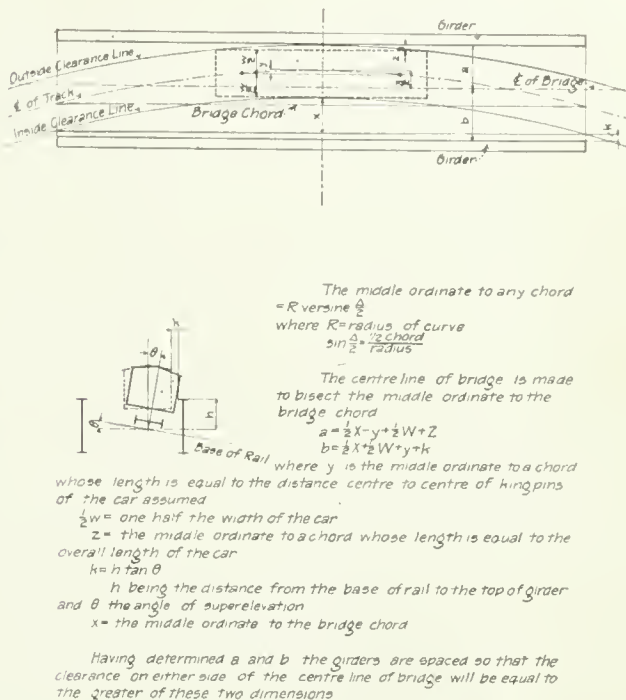 Girder
Outside Clearance Line
℄ of Track
Inside Clearance Line
Bridge Chord
℄ of Bridge
½W
½W
y
x
z
a
b
Girder
h
θ
θ
h
Base of Rail
The middle ordinate to any chord
= R versine Δ/2
where R = radius of curve
sin Δ/2 = ½ chord/radius
The centre line of bridge is made
to bisect the middle ordinate to the
bridge chord
a = ½X-y+½W+Z
b = ½X+½W+y+k
where y is the middle ordinate to a chord
whose length is equal to the distance centre to centre of kingpins
of the car assumed
½w = one half the width of the car
z = the middle ordinate to a chord whose length is equal to the
overall length of the car
k = h tan θ
h being the distance from the base of rail to the top of girder
and θ the angle of superelevation
x = the middle ordinate to the bridge chord
Having determined a and b the girders are spaced so that the
clearance on either side of the centre line of bridge will be equal to
the greater of these two dimensions